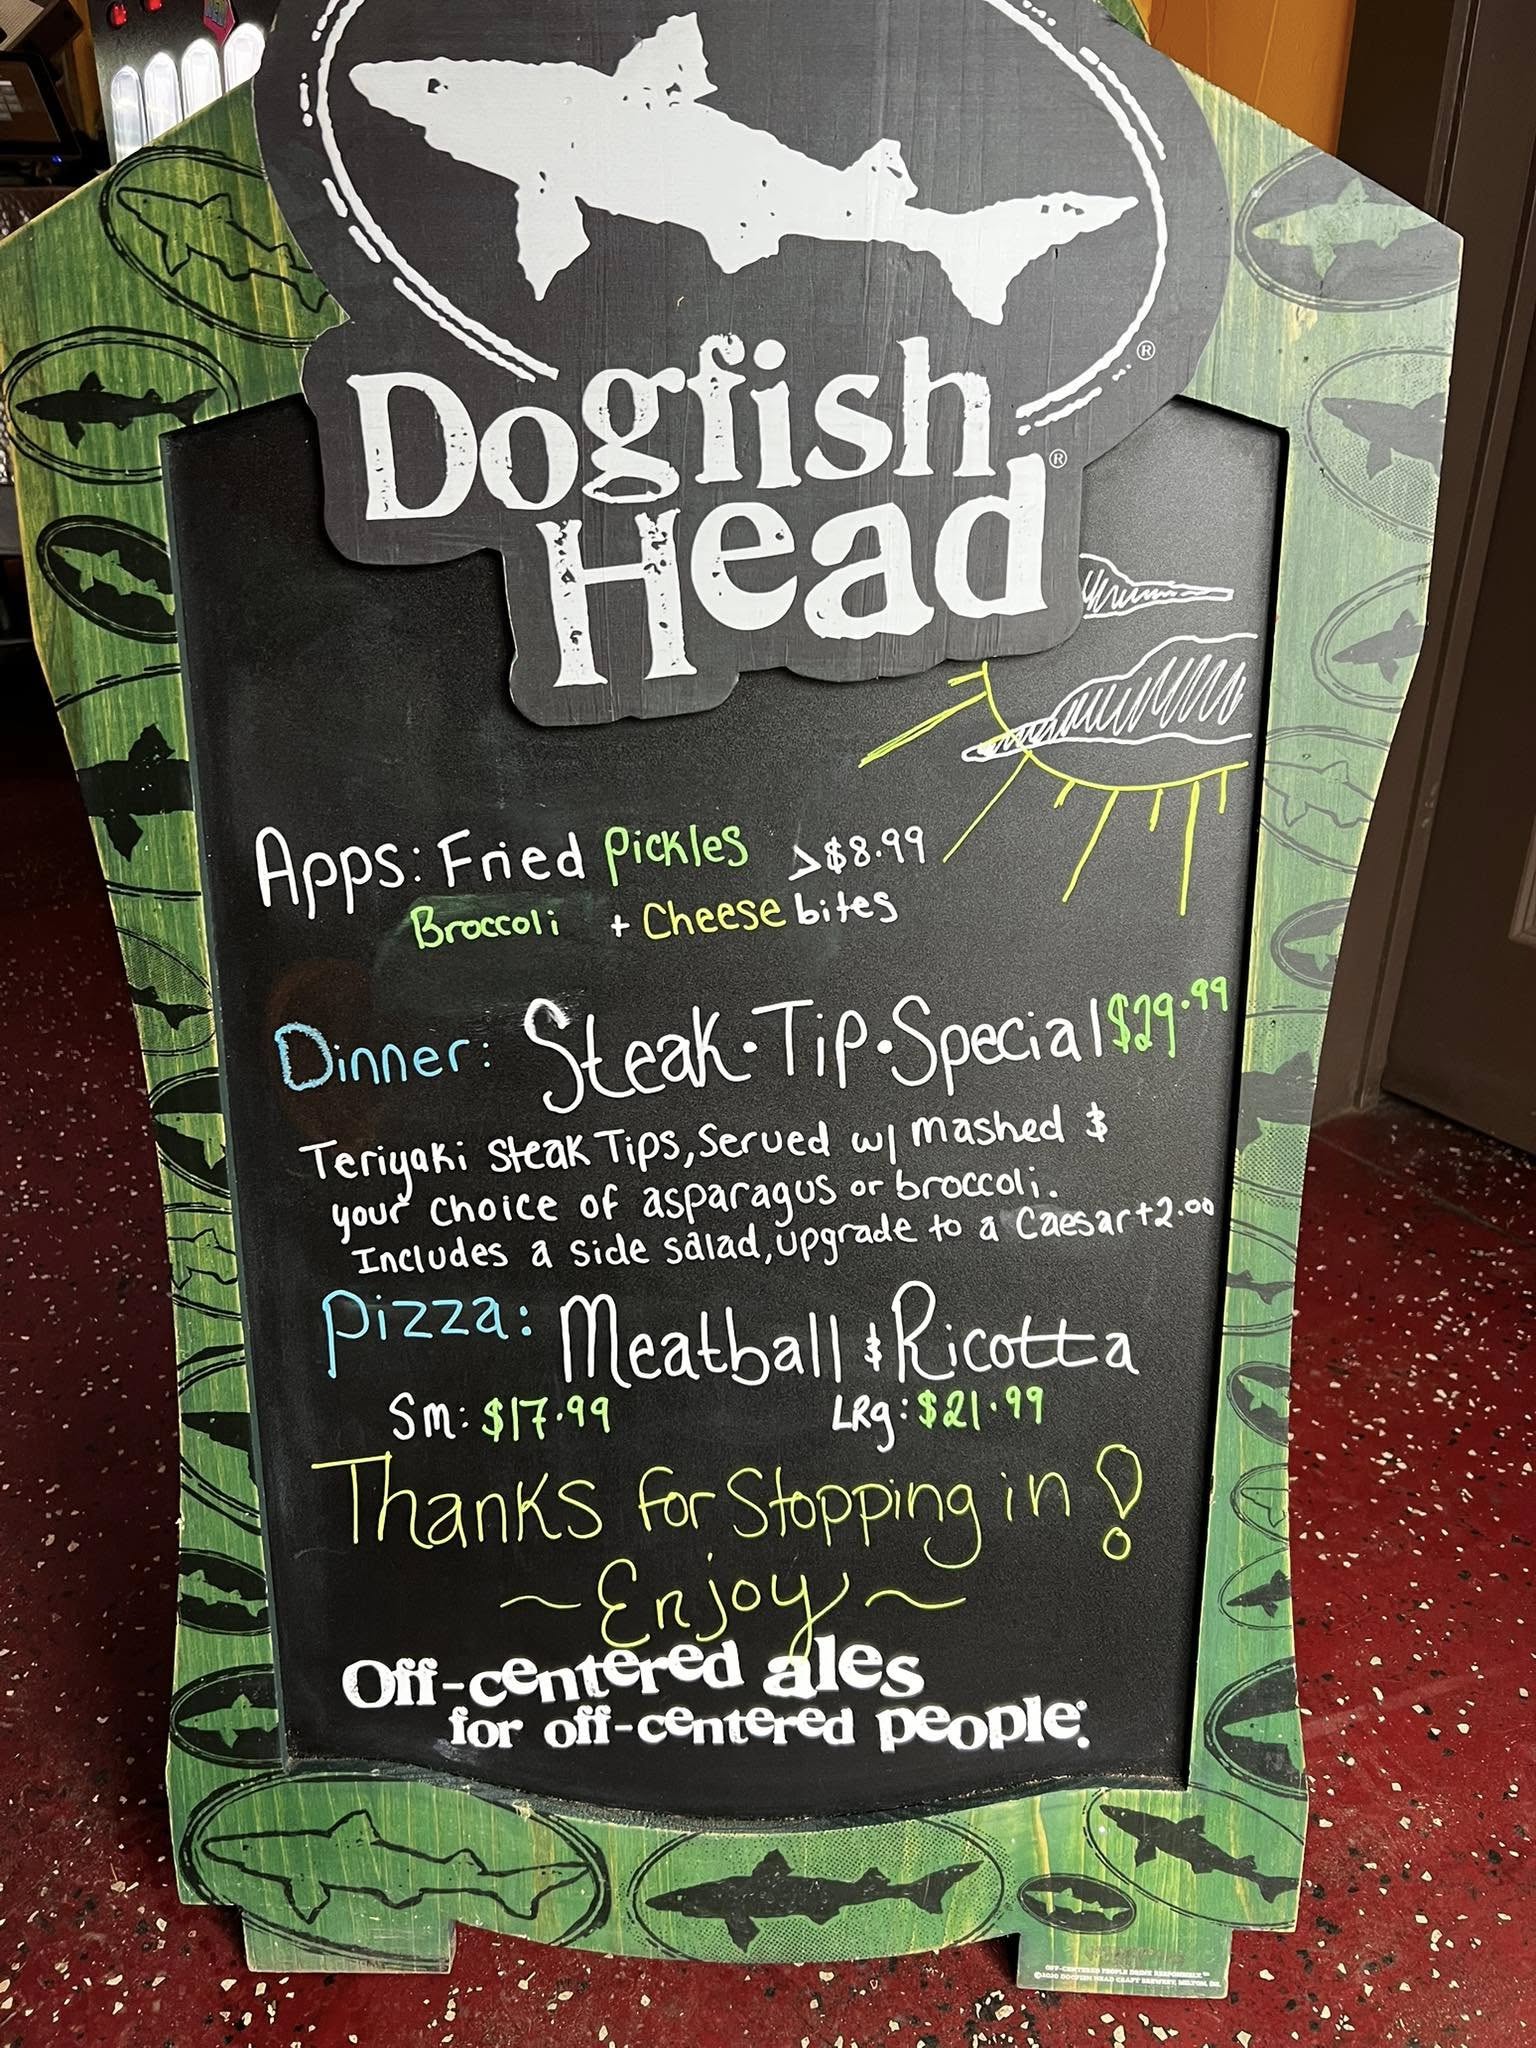 Dogfish
Head
Apps: Fried Pickles > $8.99
Broccoli + Cheese bites
Dinner: Steak • Tip • Special $29.99
Teriyaki Steak Tips, Served w/ mashed &
your choice of asparagus or broccoli.
Includes a side salad, upgrade to a Caesar +2.00
Pizza: Meatball & Ricotta
Sm: $17.99 LRg: $21.99
Thanks for Stopping in!
~Enjoy~
Off-centered ales
for off-centered people.
OFF-CENTERED PEOPLE DRINK RESPONSIBLY.
©2020 DOGFISH HEAD CRAFT BREWERY, MILTON, DE.